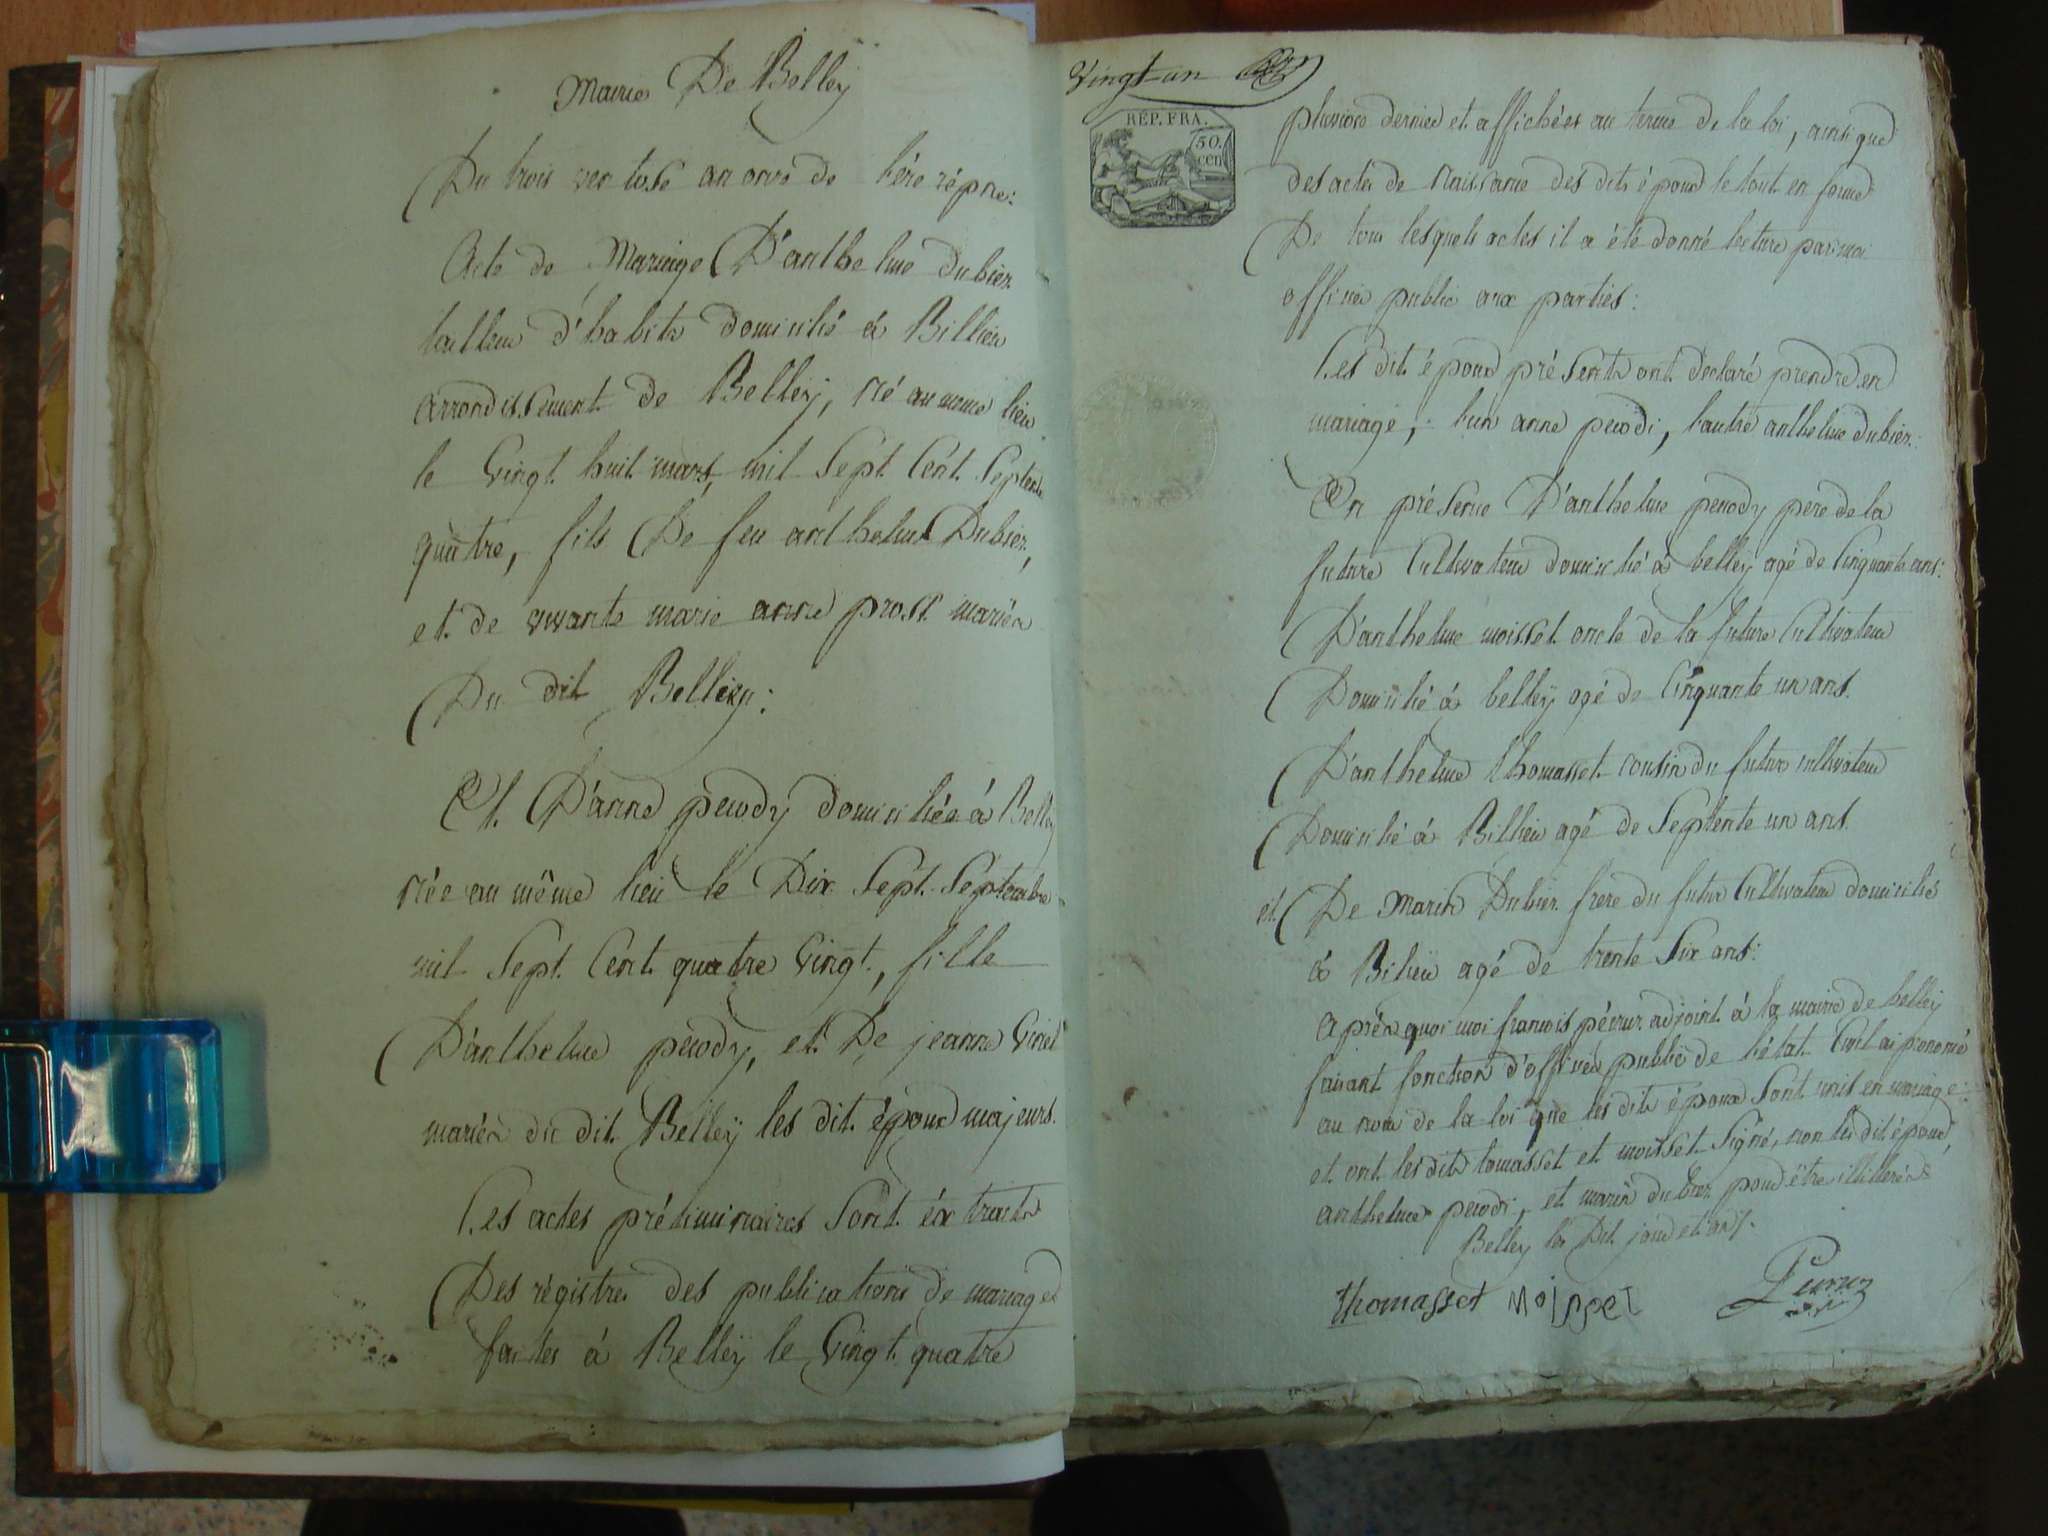 Mairie De Belleÿ
Du trois ventose an onze de l'ère répne:
Acte de Mariage D'anthelme Dubiez
tailleur d'habits domicilié à Billieu
arrondissement de Belleÿ, né au meme lieu
le Vingt huit mars, mil Sept Cent Septente
quatre, fils De feu anthelme Dubiez,
et de vivante marie anne prost mariés
Du dit Belleÿ:
Et D'anne perody domiciliée à Belleÿ
née au même lieu le Dix Sept Septembre
mil Sept Cent quatre Vingt, fille
D'anthelme perody, et De jeanne
mariés du dit Belleÿ les dit époux majeurs.
Les actes préliminaires Sont éxtraits
Des régistres des publications de mariage
faites à Belleÿ le Vingt quatre
Vingt-un
RÉP. FRA.
50.
cen
pluviose dernier et affichées au terme de la loi, ainsi que
des actes de Naissance des dits époux le tout en forme
De tous lesquels actes il a été donné lecture par moi
officier public aux parties:
Les dit époux présents ont déclaré prendre en
mariage, l'un anne perodi, l'autre anthelme dubiez:
En présence D'anthelme perody pere de la
future Cultivateur domicilié à belleÿ agé de Cinquante ans:
D'anthelme moisset oncle de la future Cultivateur
Domicilié à belleÿ agé de Cinquante un ans.
D'anthelme thomasset cousin du futur cultivateur
Domicilié à Billieu agé de Septente un ans
et De Marin Dubiez frere du futur Cultivateur domiciliés
à Bilieu agé de trente Six ans:
Après quoi moi francois péirux adjoint à la mairie de belleÿ
faisant fonction d'officier public de l'état Civil ai prononcé
au nom de la loi que les dits époux Sont unis en mariage:
et ont les dits tomasset et moisset Signé, non les dit époux,
anthelme perodi, et marin dubiez pour être illitterés
Belleÿ les Dit jour et an.
thomasset Moisset